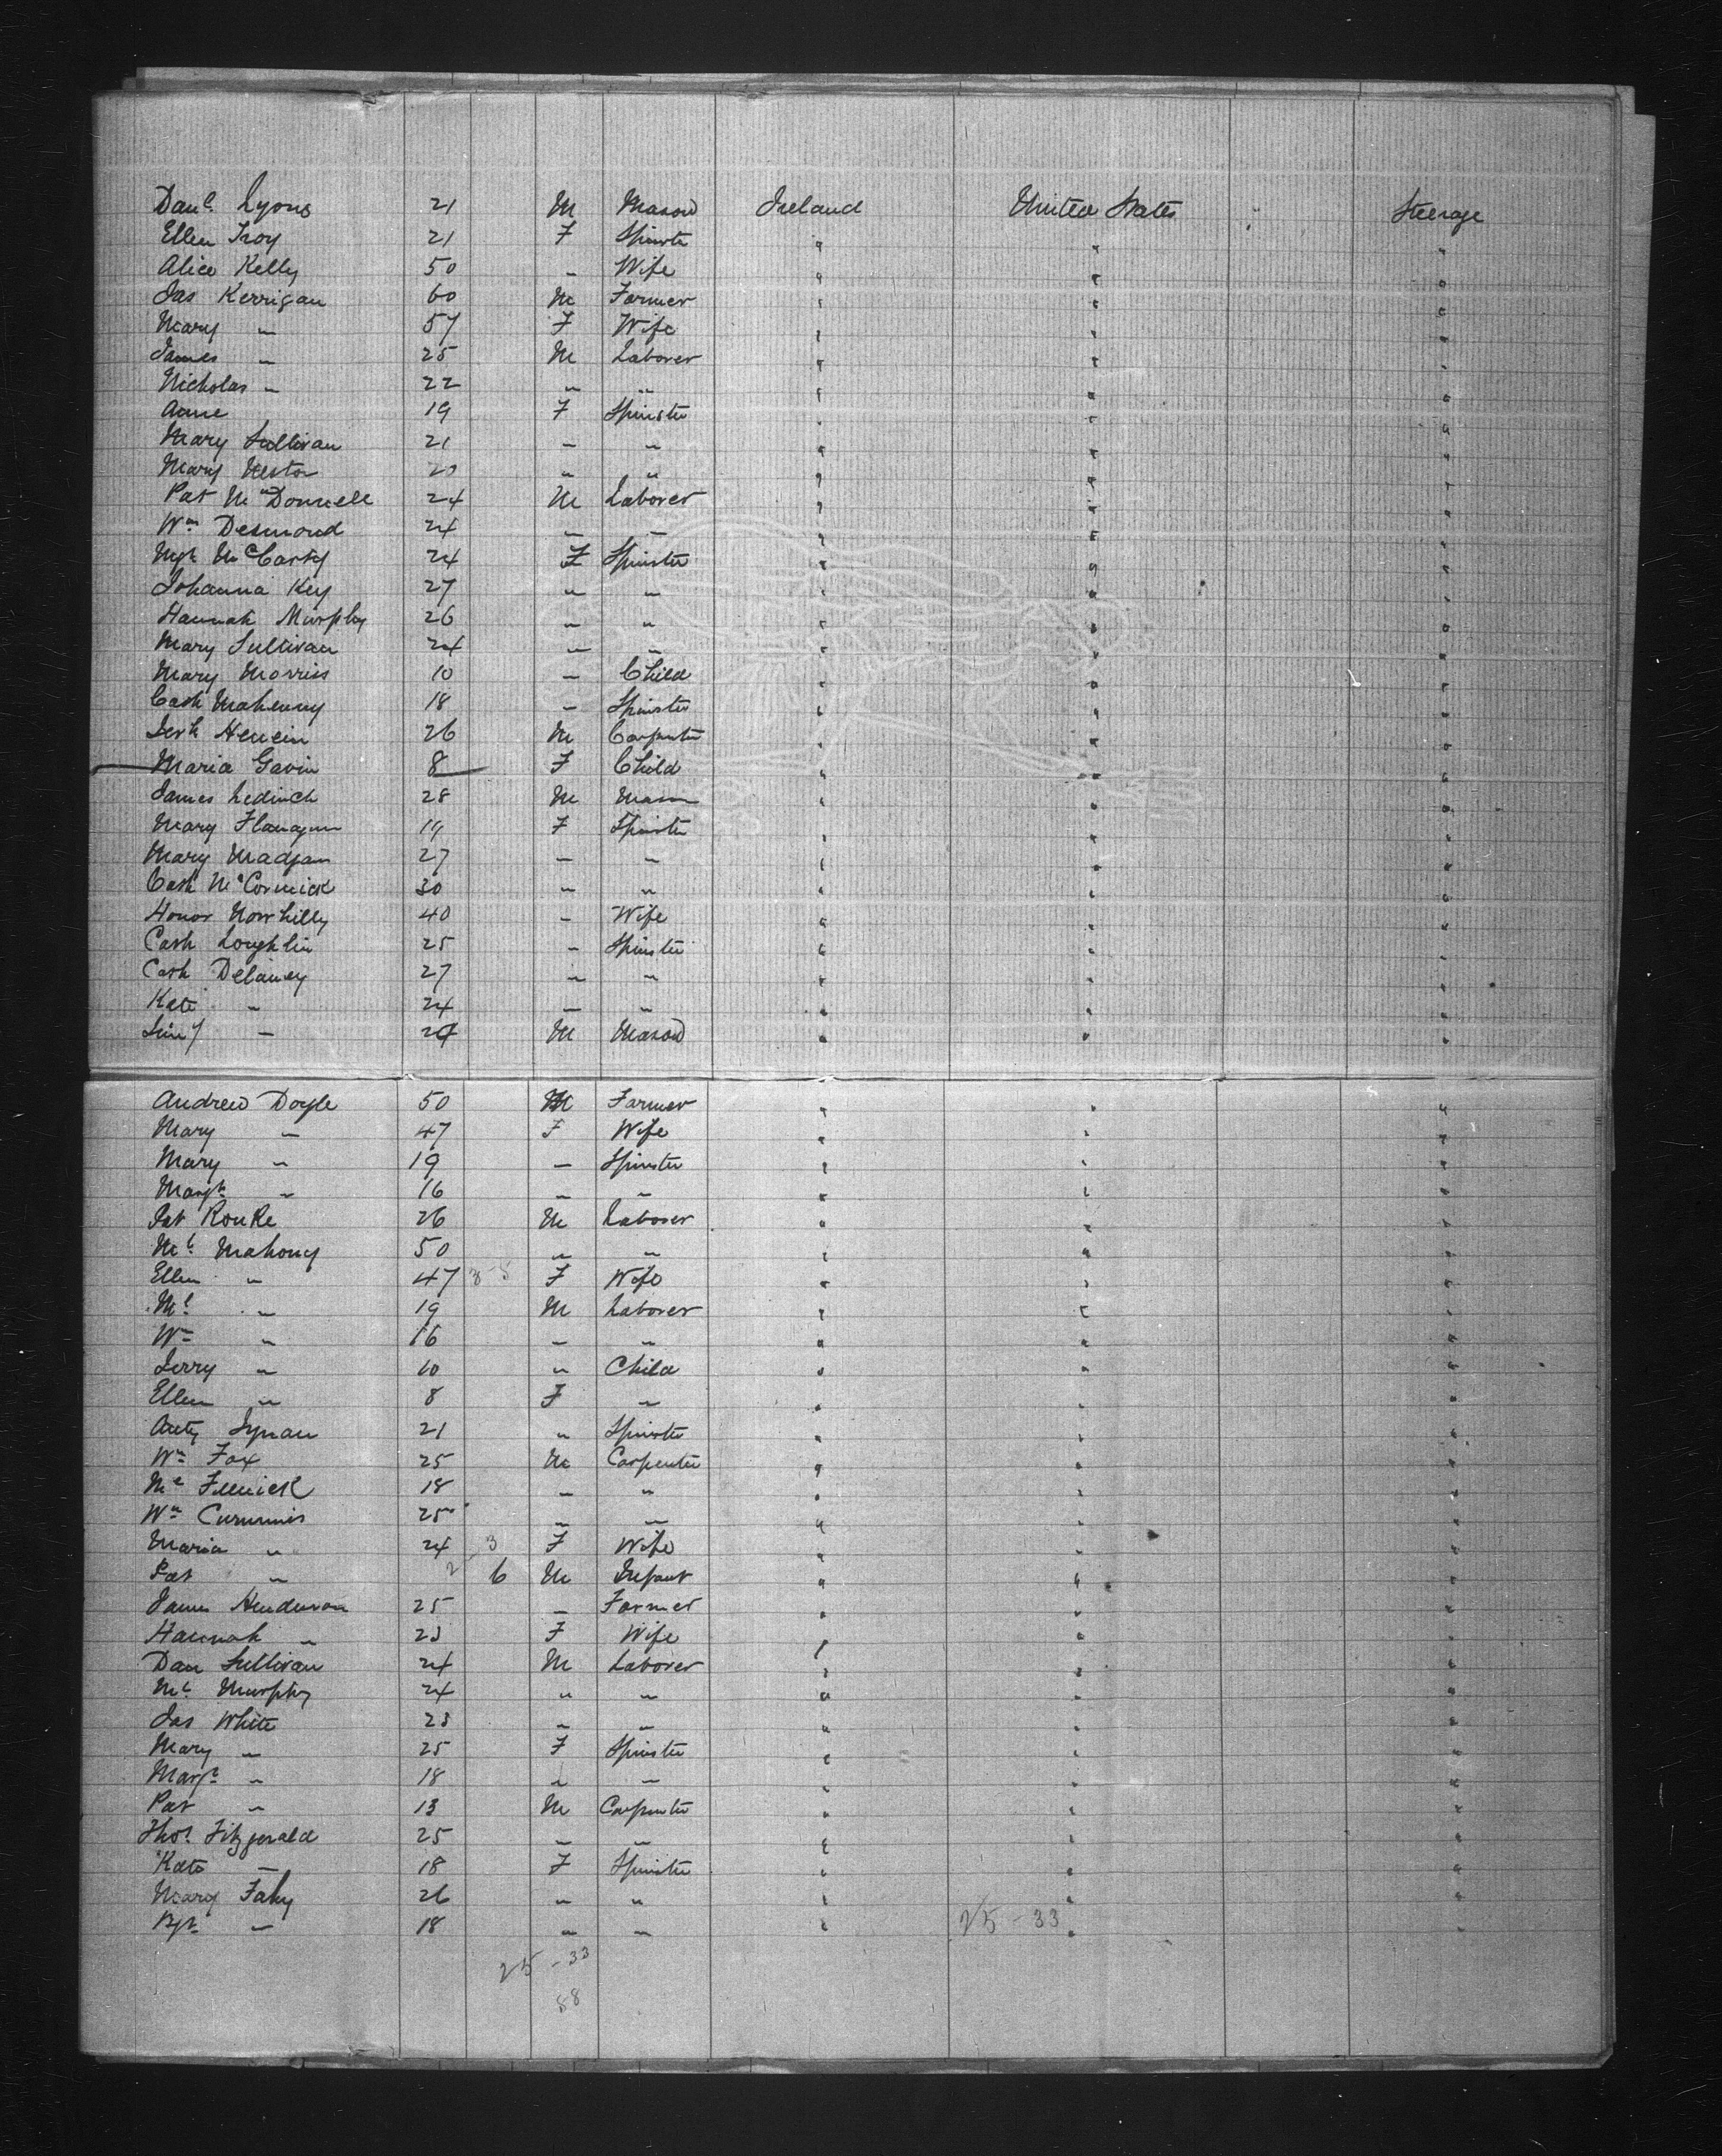 Danl. Lyons 21 M Mason Ireland United States Steerage
Ellen Troy 21 F Spinster " " "
Alice Kelly 50 " Wife " " "
Jas Kerrigan 60 M Farmer " " "
Mary " 57 F Wife " " "
James " 25 M Laborer " " "
Nicholas " 22 " " " " "
Anne 19 F Spinster " " "
Mary Sullivan 21 " " " " "
Mary Nestor 20 " " " " "
Pat McDonnell 24 M Laborer " " "
Wm Desmond 24 " " " " "
McCarty 24 F Spinster " " "
Johanna Key 27 " " " " "
Hannah Murphy 26 " " " " "
Mary Sullivan 24 " " " " "
Mary Morriss 10 " Child " " "
Cath Mahenny 18 " Spinster " " "
Jerh 26 M Carpenter " " "
Maria Gavin 8 F Child " " "
James 28 M Mason " " "
Mary Flanagan F Spinster " " "
Mary Madgan 27 " " " " "
Cath McCormick 30 " " " " "
Honor 40 " Wife " " "
Cath Loughlin 25 " Spinster " " "
Cath Delaney 27 " " " " "
Kate " 24 " " " " "
" M Mason " " "
Andrew Doyle 50 M Farmer " " "
Mary " 47 F Wife " " "
Mary " 19 " Spinster " " "
Margt " 16 " " " " "
Pat Rouke 26 M Laborer " " "
Ml. Mahony 50 " " " " "
Ellen " 47 F Wife " " "
Ml " 19 M Laborer " " "
Wm " 16 " " " " "
Jerry " 10 " Child " " "
Ellen " 8 F " " " "
21 " Spinster " " "
Wm Fox 25 M Carpenter " " "
Ml 18 " " " " "
Wm Cummins 25 " " " " "
Maria " 24 F Wife " " "
Pat " 6 M Infant " " "
James Henderson 25 " Farmer " " "
Hannah " 23 F Wife " " "
Dan Sullivan 24 M Laborer " " "
Ml. Murphy 24 " " " " "
Jas White 23 " " " " "
Mary " 25 F Spinster " " "
Margt " 18 " " " " "
Pat " 13 M Carpenter " " "
Thos. Fitzgerald 25 " " " " "
Kate " 18 F Spinster " " "
Mary Fahy 26 " " " " "
Bgt " 18 " " " " "
25 - 33
25 - 33